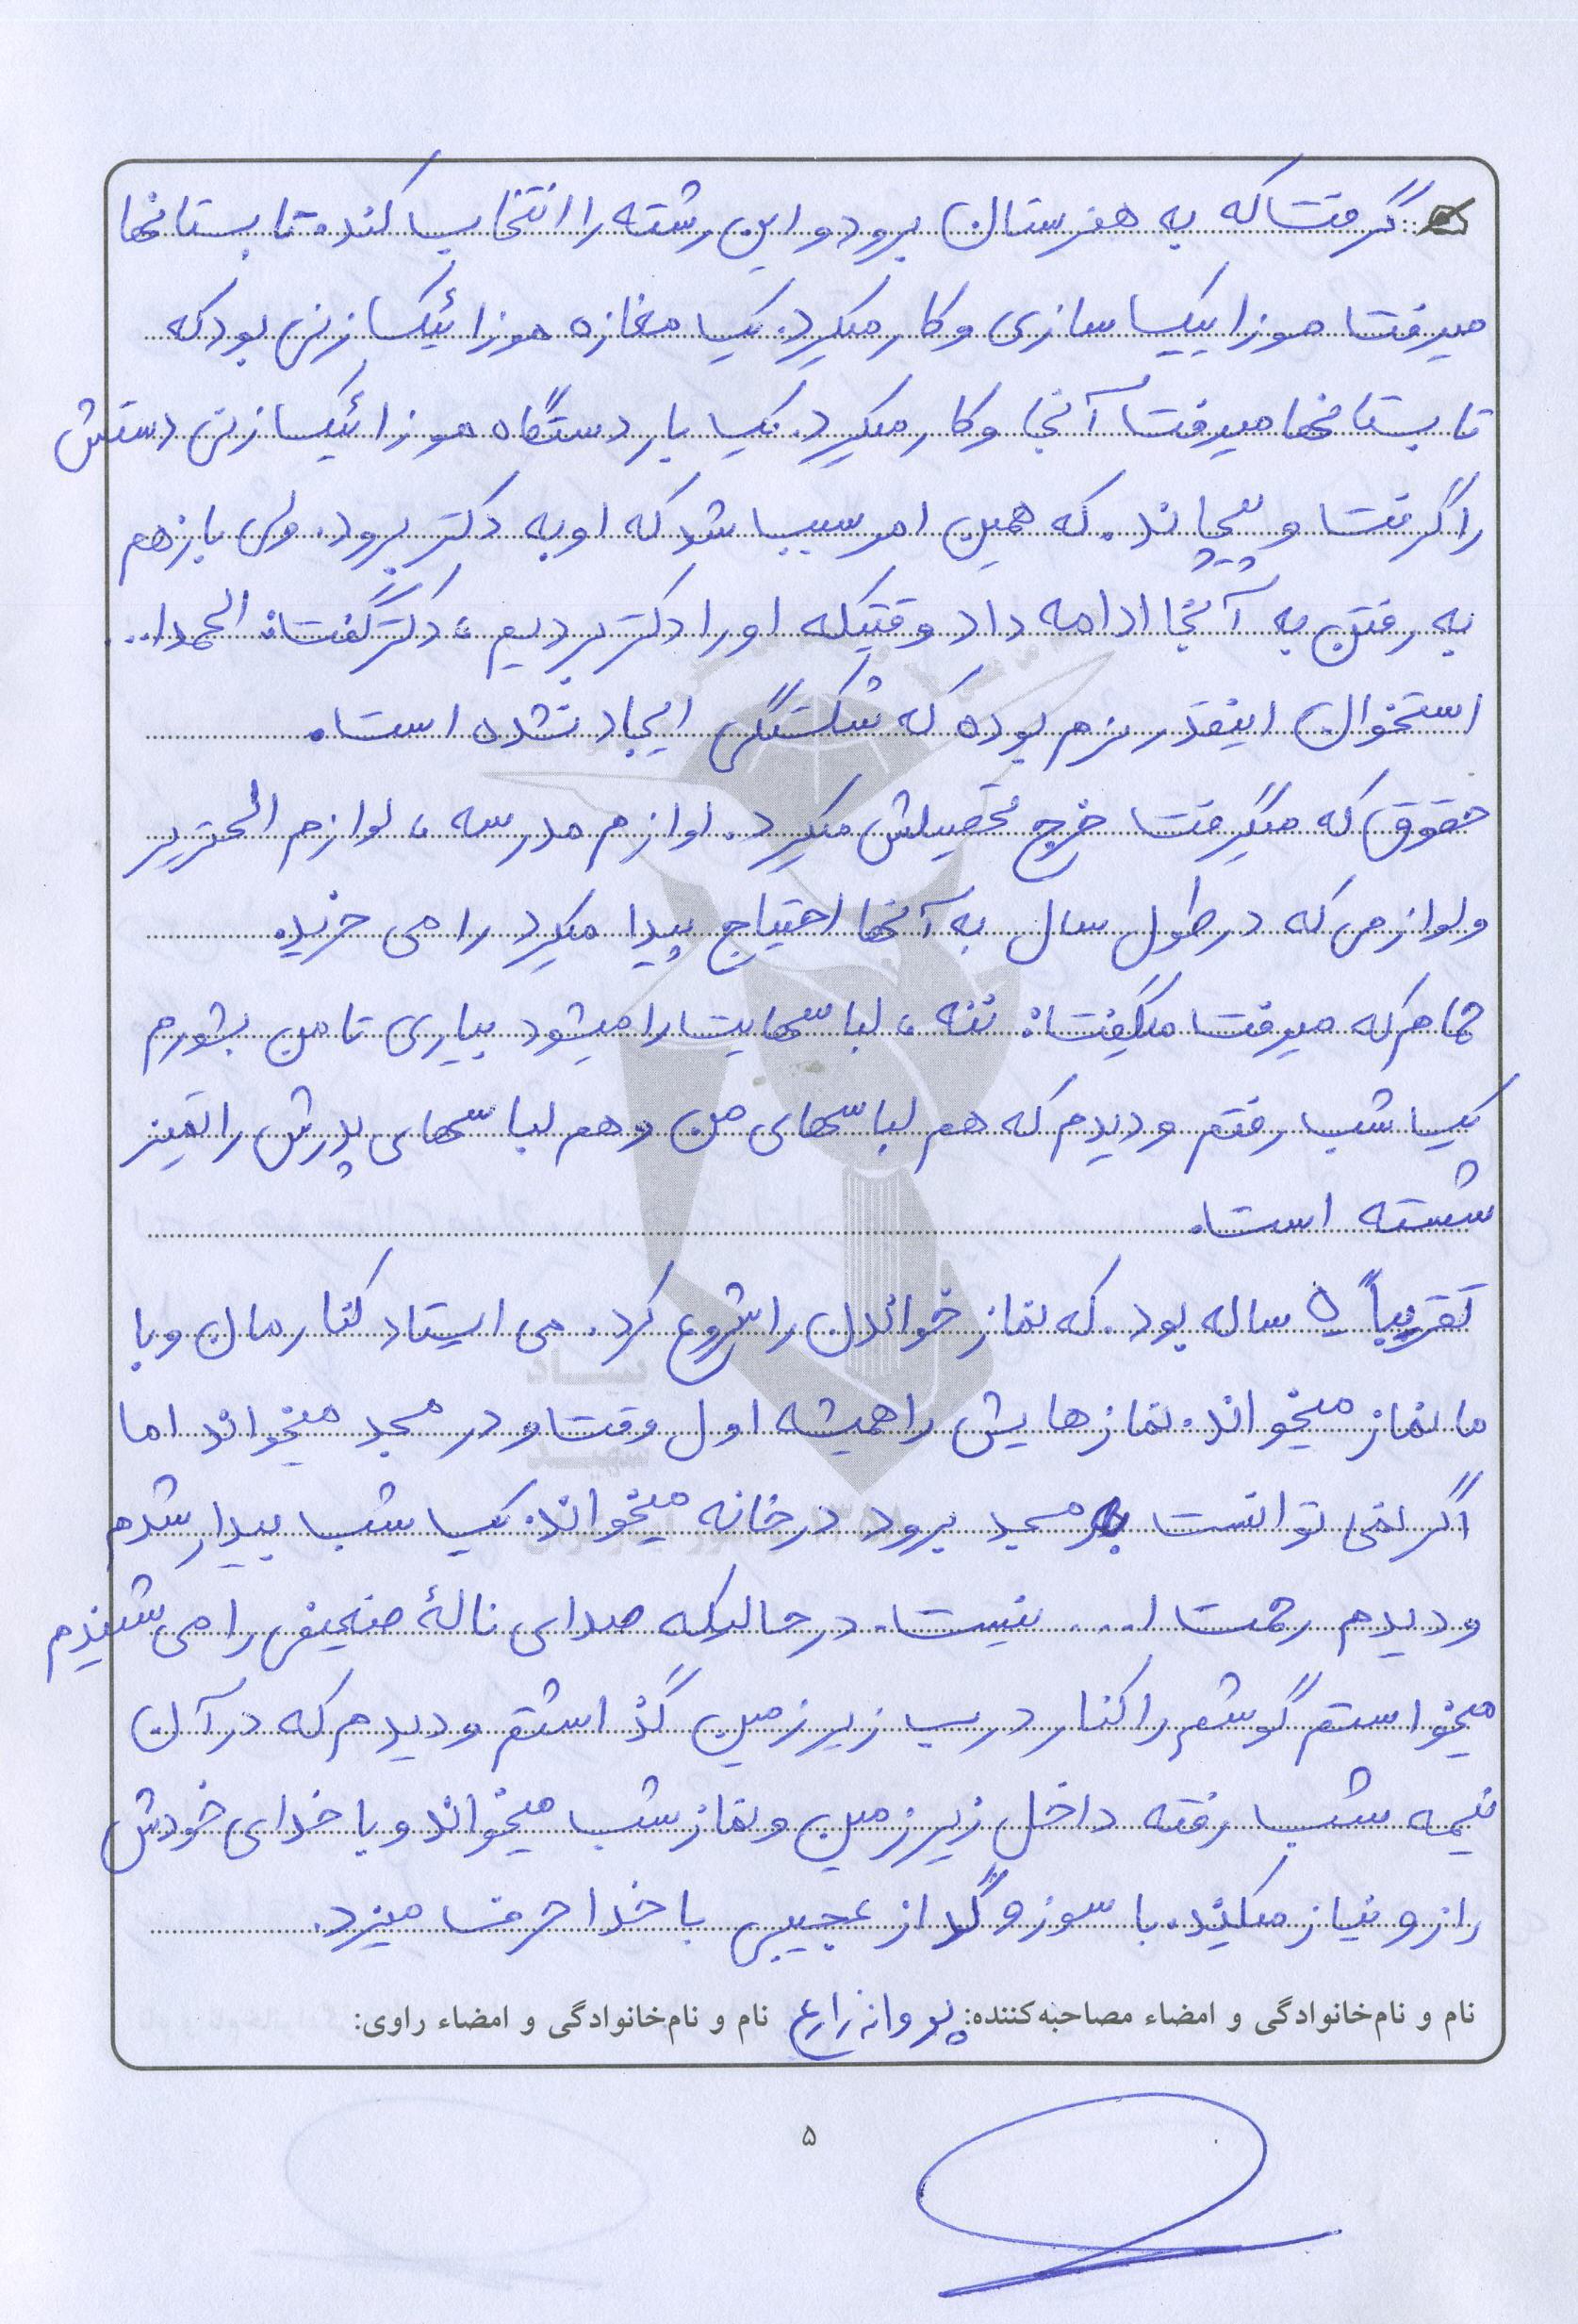 گرفت که به هنرستان برود و این رشته را انتخاب کند. تابستانها
میرفت موزاییک سازی و کار میکرد. یک مغازه موزائیکسازنی بود که
تابستانها میرفت آنجا و کار میکرد. یک بار دستگاه موزائیکسازنی دستش
را گرفت و پیچاند. که همین امر سبب شد که او به دکتر برود. ولی بازهم
به رفتن به آنجا ادامه داد وقتیکه او را دکتر بردیم، دکتر گفت: الحمدا...
استخوان اینقدر نرم بوده که شکستگی ایجاد نشده است.
حقوقی که میگرفت خرج تحصیلش میکرد. لوازم مدرسه، لوازم التحریر
و لوازمی که در طول سال به آنها احتیاج پیدا میکرد را می خرید.
حمام که میرفت میگفت: ننه، لباسهایت را میشود بیاری تا من بشورم
یک شب رفتم و دیدم که هم لباسهای من و هم لباسهای پدرش را تمیز
شسته است.
تقریباً ۵ ساله بود. که نماز خواندن را شروع کرد. می ایستاد کنارمان و با
ما نماز میخواند. نمازهایش را همیشه اول وقت و در مسجد میخواند اما
اگر نمی توانست به مسجد برود در خانه میخواند. یک شب بیدار شدم
و دیدم رحمت ا... نیست. در حالیکه صدای نالهٔ ضعیفی را می شنیدم
میخواستم گوشم را کنار درب زیرزمین گذاشتم و دیدم که در آن
نیمه شب رفته داخل زیرزمین و نماز شب میخواند و با خدای خودش
راز و نیاز میکند. با سوز و گداز عجیبی با خدا حرف میزد.
نام و نام‌خانوادگی و امضاء مصاحبه‌کننده: پروانه زارع نام و نام‌خانوادگی و امضاء راوی:
۵